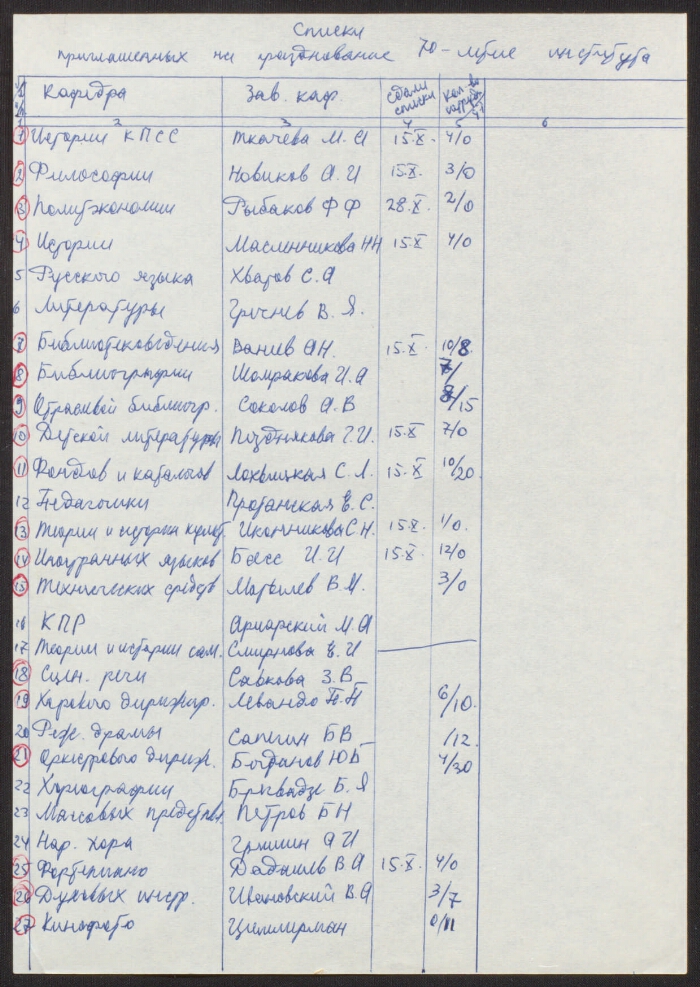 Списки
приглашенных на празднование 70-летие института
№ Кафедра Зав. каф. Сдали списки Кол-во
1 2 3 4 5 6
1 Истории КПСС Ткачева М. И 15.X. 4/0
2 Философии Новиков А. И 15.X. 3/0
3 Политэкономии Рыбаков Ф Ф 28.X. 2/0
4 Истории Масленникова НН 15.X 4/0
5 Русского языка Хватов С. А
6 Литературы Гречнев В. Я.
7 Библиотековедения Ванеев АН. 15.X. 10/8.
8 Библиографии Шомракова И. А 7/
9 Отраслевой библиогр. Соколов А. В 8/15
10 Детской литературы Позднякова Г. И. 15.X 7/0
11 Фондов и каталогов С. Л. 15.X 10/20.
12 Педагогики Е. С.
13 Теории и истории культ. Иконникова С. Н. 15.X. 1/0.
14 Иностранных языков Басс И. И 15.X 12/0
15 Технических средств В. М. 3/0
16 КПР Ариарский М. А
17 Теории и истории сам. Смирнова Е. И
18 Сцен. речи Савкова З. В
19 Хорового дирижир. Левандо П. П 6/10.
20 Реж. драмы Сапегин Б В /12.
21 Оркестрового дириж. Богданов Ю Б 4/30
22 Хореографии Брегвадзе Б. Я
23 Массовых представ. Петров Б Н
24 Нар. хора А И
25 Фортепиано Дадашев В А 15.X. 4/0
26 Духовых инстр. Ивановский В. А 3/7
27 Кинофото Циммерман 0/11